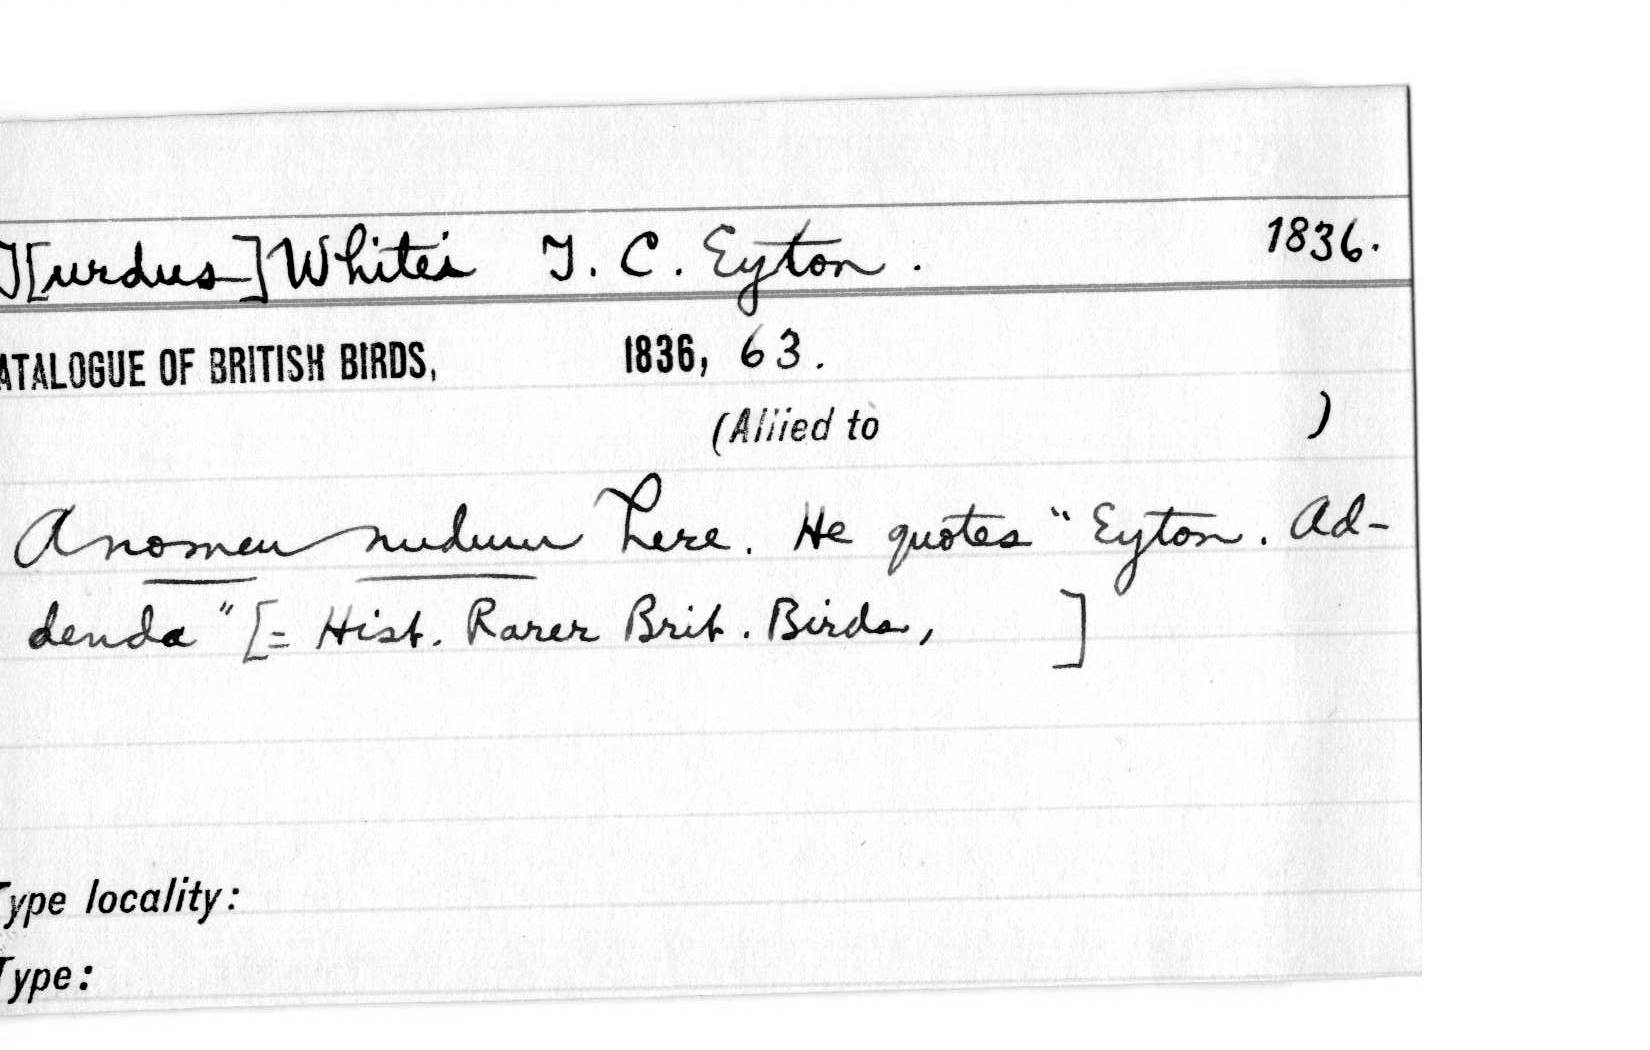 T[urdus] Whitei T. C. Eyton. 1836.
ATALOGUE OF BRITISH BIRDS, 1836, 63.
(Allied to )
A nomen nudum here. He quotes "Eyton. Ad-
denda" [= Hist. Rarer Brit. Birds, ]
Type locality:
Type: